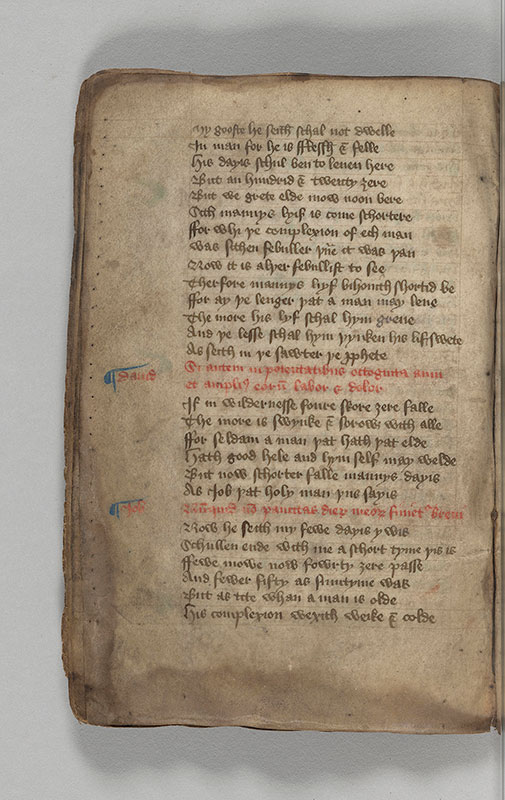 My gooste he seith schal not dwelle
In man for he is fflessch & felle
His dayis schul ben to leuen here
But an hundrid & twenty ȝere
But we grete elde mow noon bere
Sith mannys lyif is come schortere
ffor whi þe complexion of ech man
Was sithen febuller þne it was þan
Now it is alþer febullist to see
Therfore mannys liyf bihouith schortid be
ffor ay þe lenger þat a man may leue
The more his lyf schal hym greue
And þe lesse schal hym þynken his lif swete
As seith in þe sawter þe ꝓphete
dauid Si autem in potentatibus octoginta anni
et ampliꝰ eorū labor & dolor
If in wildernesse foure skore ȝere falle
The more is swynke & sorow with alle
ffor seldam a man þat hath þat elde
Hath good hele and hym self may welde
But now schorter falle mannys dayis
As Job þat holy man þus sayis
Job paucitas dieꝝ meoꝝ finietᵘʳ breui
Now he seith my fewe dayis y wis
Schullen ende with me a schort tyme þis is
ffewe mowe now fowrty ȝere passe
And fewer fifty as sumtyme was
But as tite whan a man is olde
His complexion wexith weike & colde